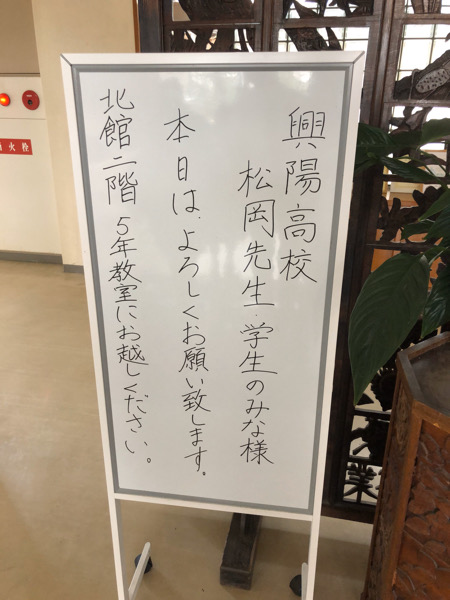 興陽高校
松岡先生・学生のみな様
本日は、よろしくお願い致します。
北館二階 5年教室にお越しください。
火栓
業